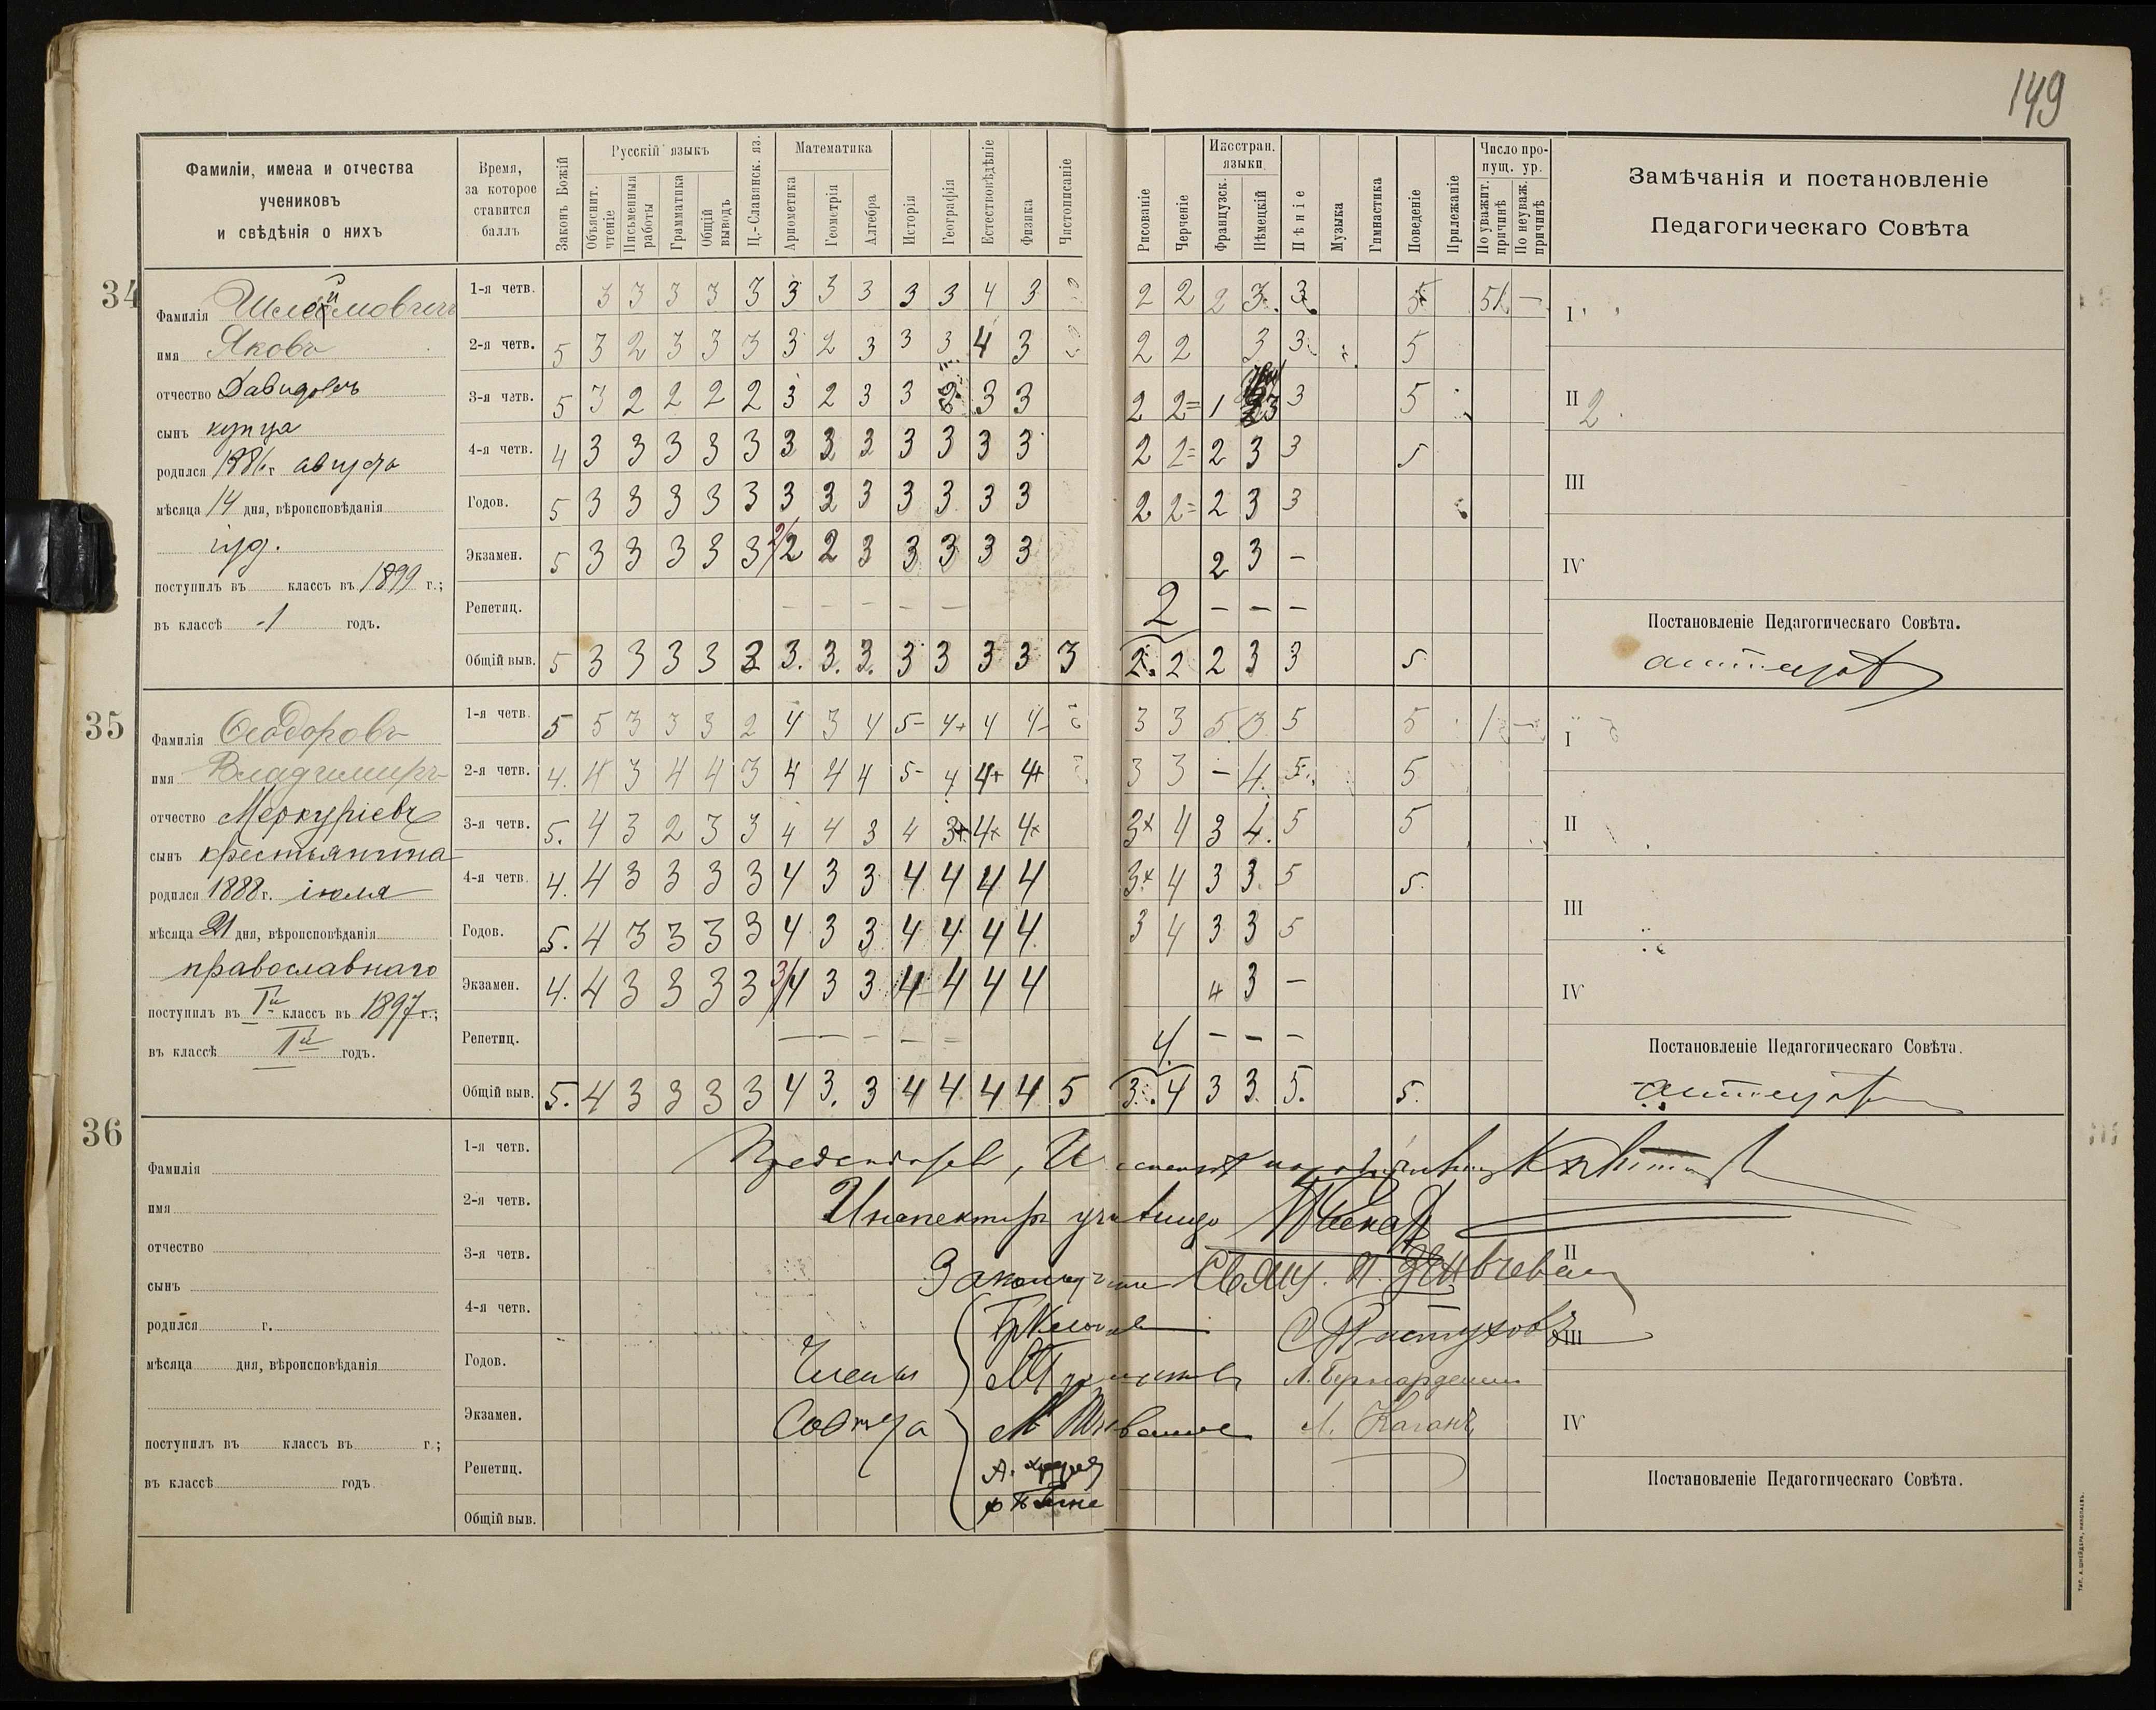 149
Фамиліи, имена и отчества
учениковъ
и свѣдѣнія о нихъ
Время,
за которое
ставится
баллъ
Законъ Божій
Русскій языкъ
Объяснит. чтеніе
Письменныя работы
Грамматика
Общій выводъ
Ц.-Славянск. яз.
Математика
Ариѳметика
Геометрія
Алгебра
Исторія
Географія
Естествовѣдѣніе
Физика
Чистописаніе
Рисованіе
Черченіе
Иностран. языки
Французск.
Нѣмецкій
Пѣніе
Музыка
Гимнастика
Поведеніе
Прилежаніе
Число пропущ. ур.
По уважит. причинѣ
По неуваж. причинѣ
Замѣчанія и постановленіе
Педагогическаго Совѣта
34
Фамилія
имя Яковъ
отчество Давидовъ
сынъ купца
родился 1886 г. августа
мѣсяца 14 дня, вѣроисповѣданія
іуд.
поступилъ въ классъ въ 1899 г.;
въ классѣ -1 годъ.
1-я четв. 3 3 3 3 3 3 3 3 3 3 4 3 2 2 2 3 3 5 51 —
2-я четв. 5 3 2 3 3 3 3 2 3 3 3 4 3 2 2 3 3 5
3-я четв. 5 3 2 2 2 2 3 2 3 3 3 3 2 2= 1 3 3 5
4-я четв. 4 3 3 3 3 3 3 3 3 3 3 3 3 2 2= 2 3 3 5
Годов. 5 3 3 3 3 3 3 3 3 3 3 3 3 2 2= 2 3 3
Экзамен. 5 3 3 3 3 3 2/2 2 3 3 3 3 3 2 3 —
Репетиц. — — — — — 2 — — —
Общій выв. 5 3 3 3 3 3 3. 3. 3. 3 3 3 3 3 2. 2 2 3 3 5
I
II 2.
III
IV
Постановленіе Педагогическаго Совѣта.
аттестатъ
35
Фамилія Ѳеодоровъ
имя Владимиръ
отчество Меркуріевъ
сынъ крестьянина
родился 1888 г. іюля
мѣсяца 21 дня, вѣроисповѣданія
православнаго
поступилъ въ Iй классъ въ 1897 г.;
въ классѣ Iй годъ.
1-я четв. 5 5 3 3 3 2 4 3 4 5- 4+ 4 4- 3 3 5 3 5 5 1 —
2-я четв. 4. 4 3 4 4 3 4 4 4 5- 4 4+ 4+ 3 3 — 4. 5 5
3-я четв. 5. 4 3 2 3 3 4 4 3 4 3+ 4+ 4+ 3+ 4 3 4. 5 5
4-я четв. 4. 4 3 3 3 3 4 3 3 4 4 4 4 3+ 4 3 3 5 5.
Годов. 5. 4 3 3 3 3 4 3 3 4 4 4 4. 3 4 3 3 5
Экзамен. 4. 4 3 3 3 3 3/4 3 3 4 4 4 4 4 3 —
Репетиц. — — — — — 4. — — —
Общій выв. 5. 4 3 3 3 3 4 3. 3 4 4. 4 4 5 3. 4 3 3. 5. 5.
I
II
III
IV
Постановленіе Педагогическаго Совѣта.
аттестатъ
36
Фамилія
имя
отчество
сынъ
родился г.
мѣсяца дня, вѣроисповѣданія
поступилъ въ классъ въ г.;
въ классѣ годъ.
1-я четв.
2-я четв.
3-я четв.
4-я четв.
Годов.
Экзамен.
Репетиц.
Общій выв.
Инспекторъ училища
Законоучитель Свящ. П.
С. Пастуховъ
Члены
Совѣта
Л. Каганъ
II
III
IV
Постановленіе Педагогическаго Совѣта.
ТИП. А. ШНЕЙДЕРА, НИКОЛАЕВЪ.